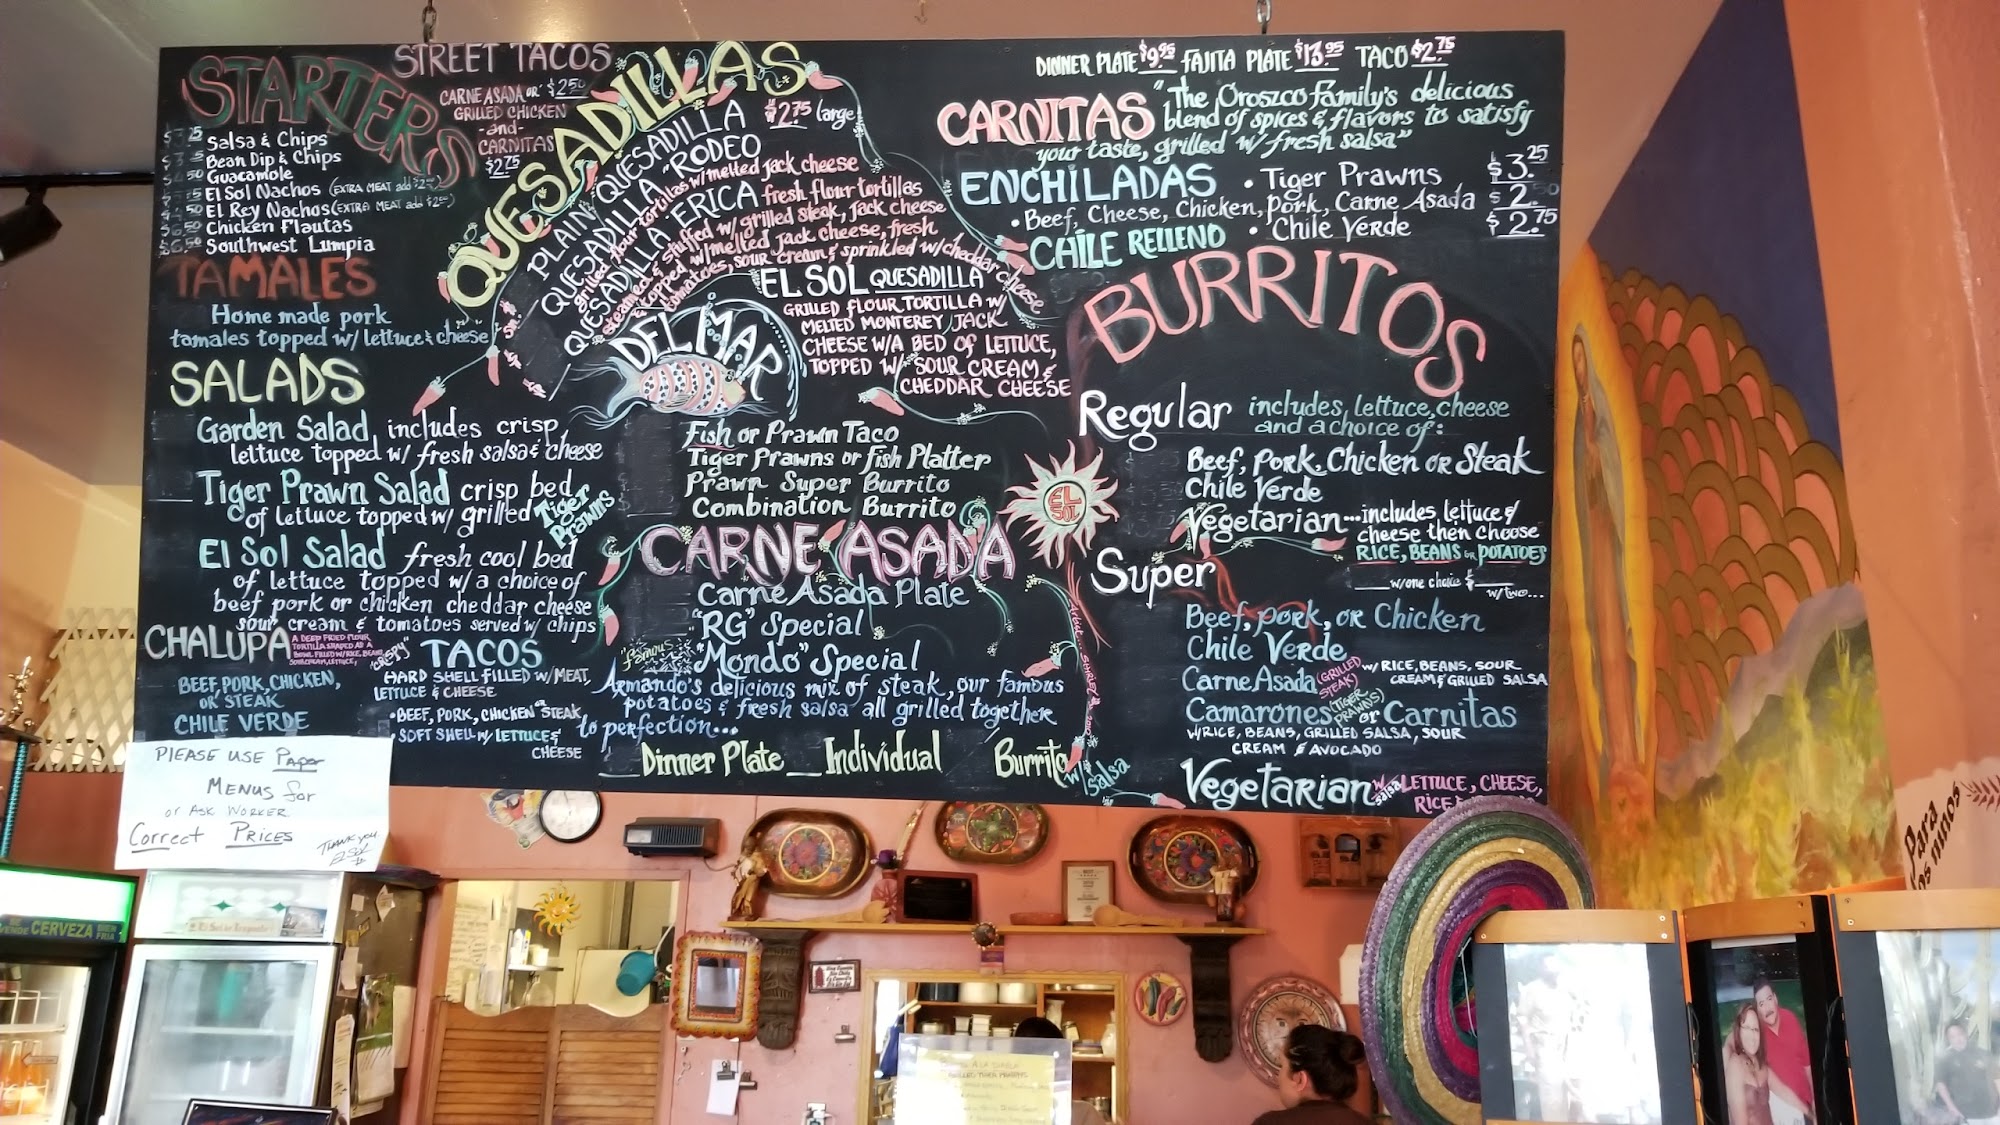 STARTERS
Salsa & Chips
Bean Dip & Chips
Guacamole
El Sol Nachos (EXTRA MEAT add
El Rey Nachos (EXTRA MEAT add
Chicken Flautas
$6.50 Southwest Lumpia
STREET TACOS
CARNE ASADA OR $2.50
GRILLED CHICKEN
-and-
CARNITAS
$2.75
TAMALES
Home made pork
tamales topped w/ lettuce & cheese
SALADS
Garden Salad includes crisp
lettuce topped w/ fresh salsa & cheese
Tiger Prawn Salad crisp bed
of lettuce topped w/ grilled Tiger Prawns
El Sol Salad fresh cool bed
of lettuce topped w/ a choice of
beef pork or chicken cheddar cheese
sour cream & tomatoes served w/ chips
CHALUPA
A DEEP FRIED FLOUR
TORTILLA SHAPED AS A
BOWL FILLED W/RICE, BEANS,
SOUR CREAM, LETTUCE,
BEEF, PORK, CHICKEN,
OR STEAK
CHILE VERDE
"CRISPY" TACOS
HARD SHELL FILLED W/ MEAT,
LETTUCE & CHEESE
• BEEF, PORK, CHICKEN OR STEAK
• SOFT SHELL W/ LETTUCE &
CHEESE
QUESADILLAS
PLAIN QUESADILLA $2.75 large
QUESADILLA "RODEO
grilled flour tortillas w/ melted jack cheese
QUESADILLA "ERICA fresh flour tortillas
steamed & stuffed w/ grilled steak, jack cheese
& topped w/ melted jack cheese, fresh
tomatoes, sour cream & sprinkled w/ cheddar cheese
EL SOL QUESADILLA
GRILLED FLOUR TORTILLA W/
MELTED MONTEREY JACK
CHEESE W/A BED OF LETTUCE,
TOPPED W/ SOUR CREAM &
CHEDDAR CHEESE
DEL MAR
Fish or Prawn Taco
Tiger Prawns or Fish Platter
Prawn Super Burrito
Combination Burrito
CARNE ASADA
Carne Asada Plate
"RG" Special
"famous" "Mondo" Special
Armando's delicious mix of steak, our famous
potatoes & fresh salsa all grilled together
to perfection...
Dinner Plate Individual Burrito w/ Salsa
EL SOL
DINNER PLATE $9.95 FAJITA PLATE $13.95 TACO $2.75
CARNITAS "The Oroszco Family's delicious
blend of spices & flavors to satisfy
your taste, grilled w/ fresh salsa"
ENCHILADAS • Tiger Prawns $3.25
• Beef, Cheese, Chicken, pork, Carne Asada $2.50
• Chile Verde $2.75
CHILE RELLENO
BURRITOS
Regular includes, lettuce, cheese
and a choice of:
Beef, Pork, Chicken OR Steak
Chile Verde
Vegetarian... includes lettuce &
cheese then choose
RICE, BEANS OR POTATOES
w/one choice & w/two...
Super
Beef, pork, or Chicken
Chile Verde
Carne Asada (GRILLED STEAK) W/ RICE, BEANS, SOUR
CREAM & GRILLED SALSA
Camarones (TIGER PRAWNS) or Carnitas
W/RICE, BEANS, GRILLED SALSA, SOUR
CREAM & AVOCADO
Vegetarian w/ salsa LETTUCE, CHEESE,
RICE
PLEASE USE Paper
MENUS for
or ASK WORKER
Correct PRICES
THANK YOU
El Sol
SE VENDE CERVEZA BIEN FRIA
Para
los niños